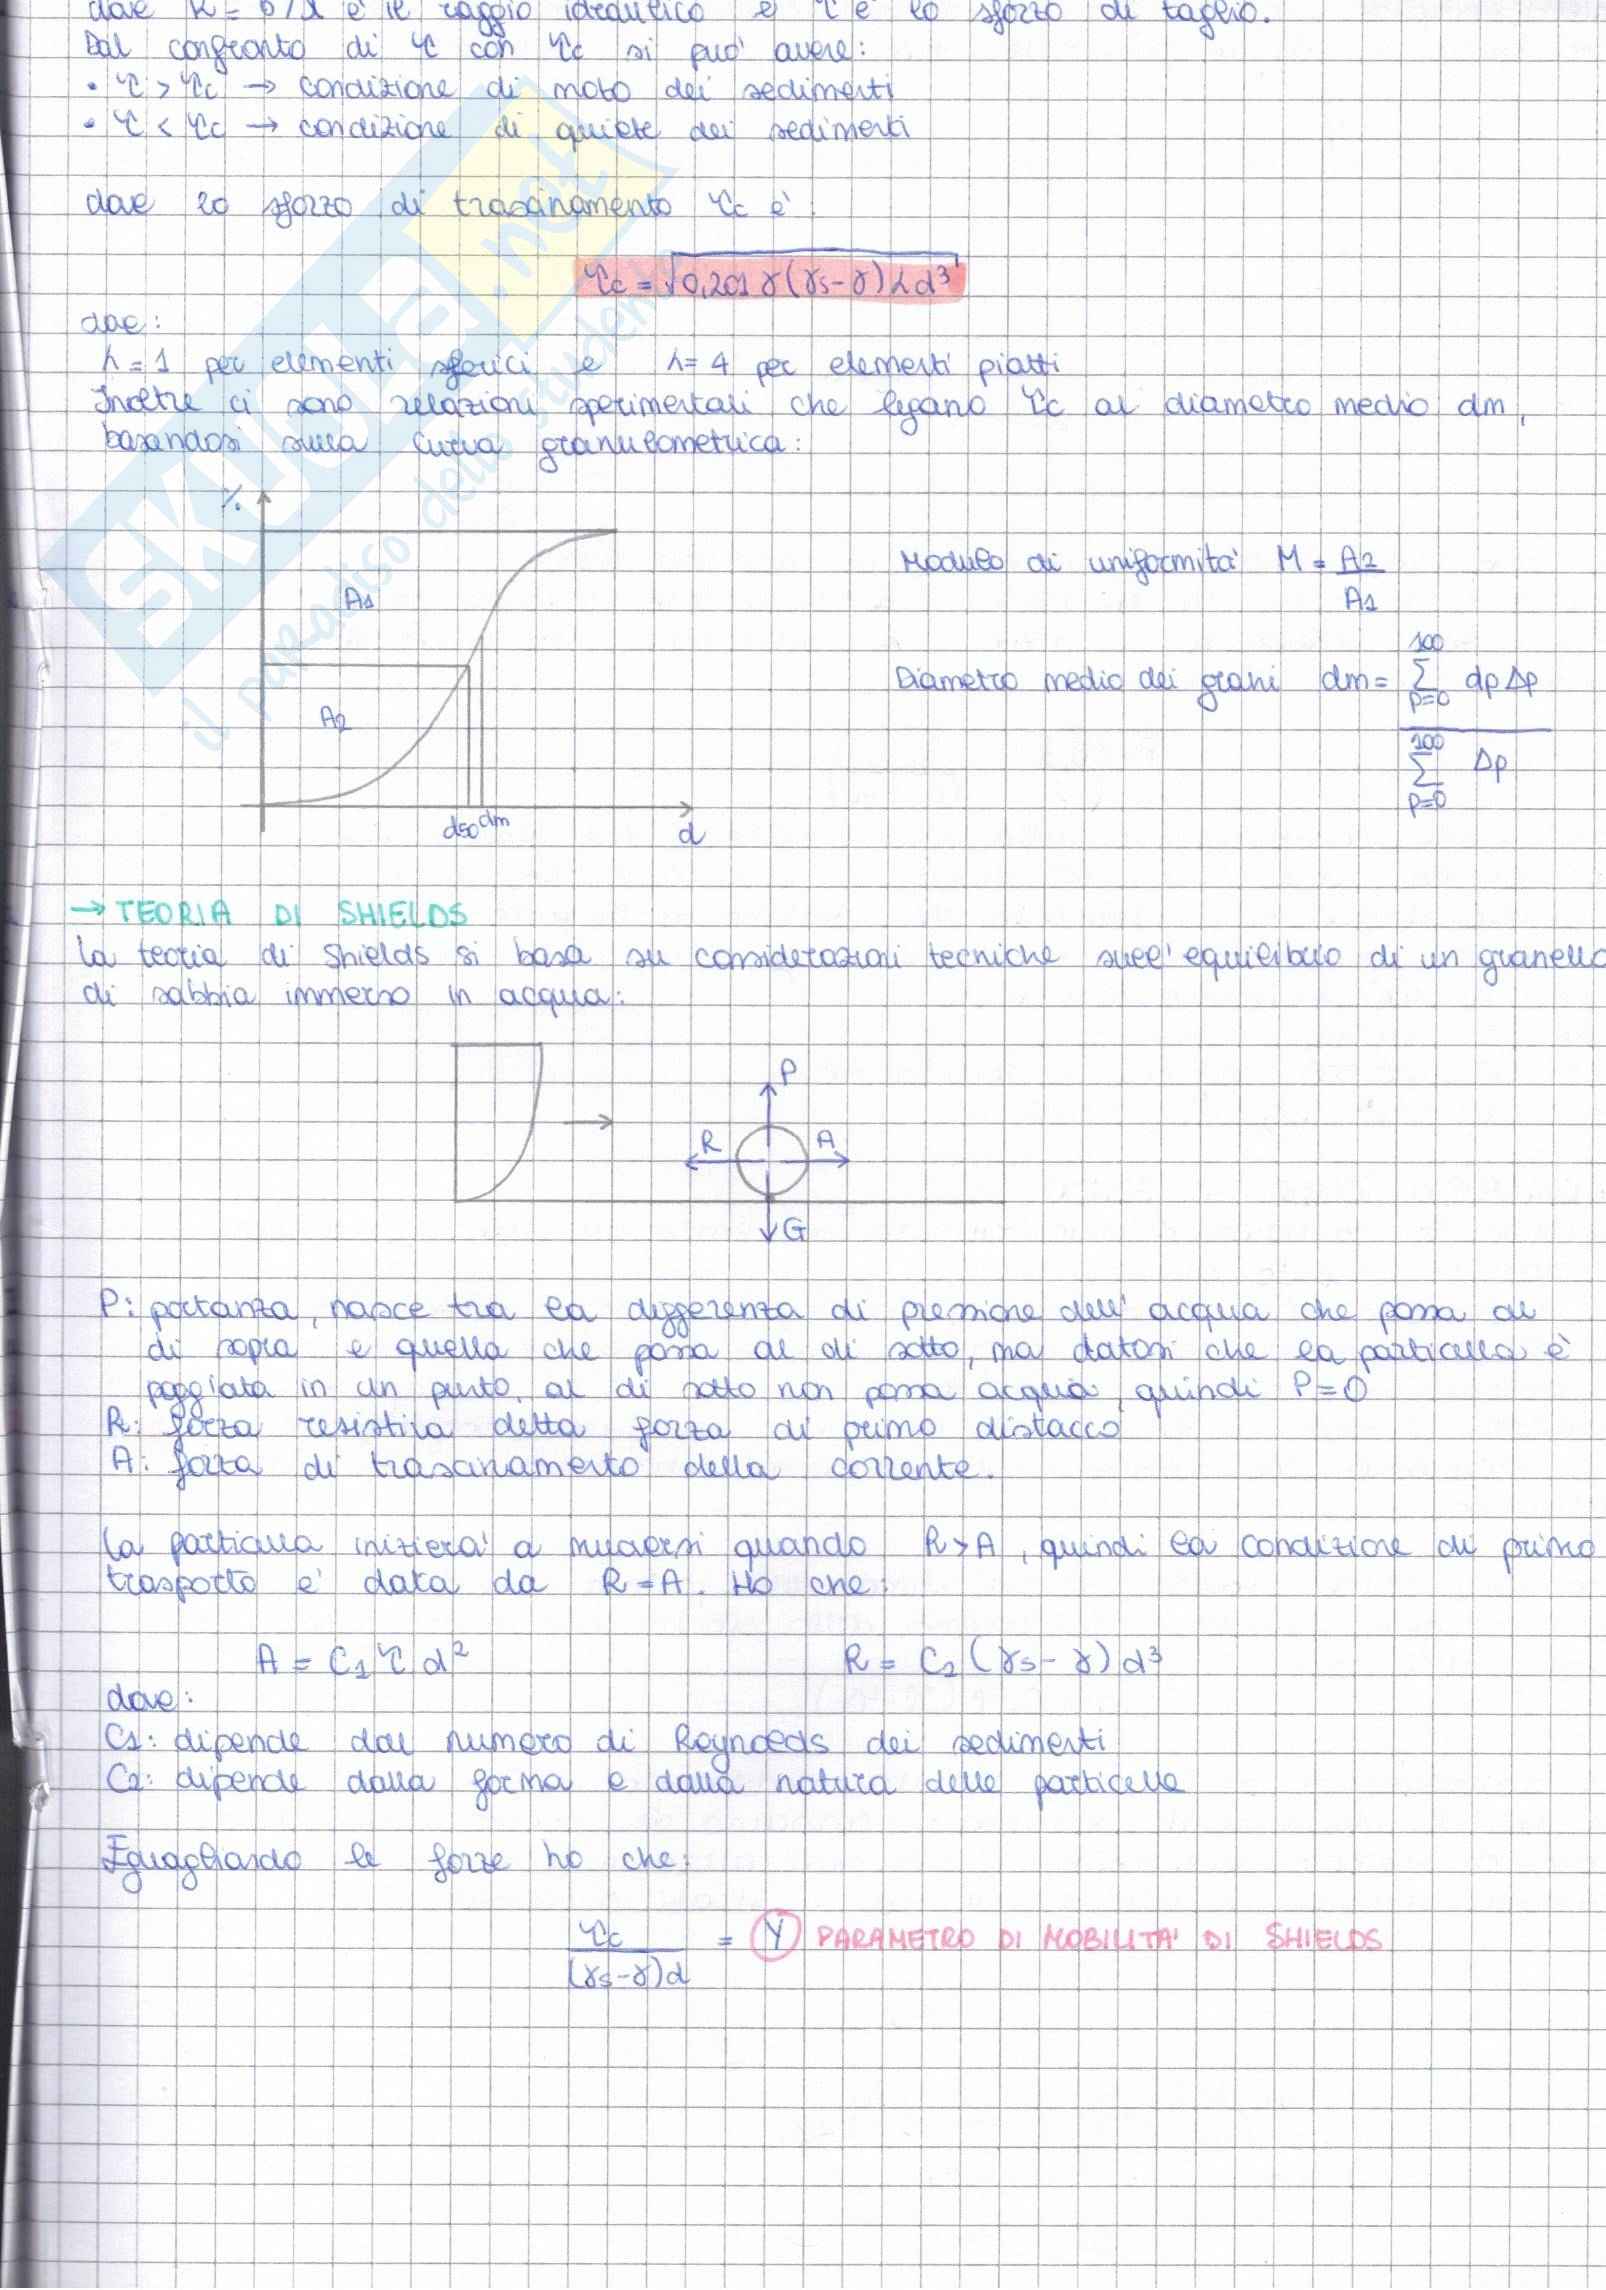 dove R = σ/χ è il raggio idraulico e τ è lo sforzo di taglio.
Dal confronto di τ con τc si può avere:
• τ > τc → condizione di moto dei sedimenti
• τ < τc → condizione di quiete dei sedimenti
dove lo sforzo di trascinamento τc è:
τc = √0,201 γ(γs-γ) λ d³
dove:
λ = 1 per elementi sferici e λ = 4 per elementi piatti
Inoltre ci sono relazioni sperimentali che legano τc al diametro medio dm,
basandosi sulla curva granulometrica:
%
A1
A2
d50 dm
d
Modulo di uniformità M = A2/A1
Diametro medio dei grani dm = Σ(p=0→100) dp Δp / Σ(p=0→100) Δp
→ TEORIA DI SHIELDS
La teoria di Shields si basa su considerazioni tecniche sull'equilibrio di un granello
di sabbia immerso in acqua:
P
R A
G
P: portanza, nasce tra la differenza di pressione dell'acqua che passa al
di sopra e quella che passa al di sotto, ma datosi che la particella è
poggiata in un punto, al di sotto non passa acqua, quindi P=0
R: forza resistiva detta forza di primo distacco
A: forza di trascinamento della corrente.
La particella inizierà a muoversi quando R>A, quindi la condizione di primo
trasporto è data da R=A. Ho che:
A = C1 τ d² R = C2 (γs-γ) d³
dove:
C1: dipende dal numero di Reynolds dei sedimenti
C2: dipende dalla forma e dalla natura delle particelle
Eguagliando le forze ho che:
τc/(γs-γ)d = Y PARAMETRO DI MOBILITA' DI SHIELDS
SKUOLA.net
il paradiso dello studente